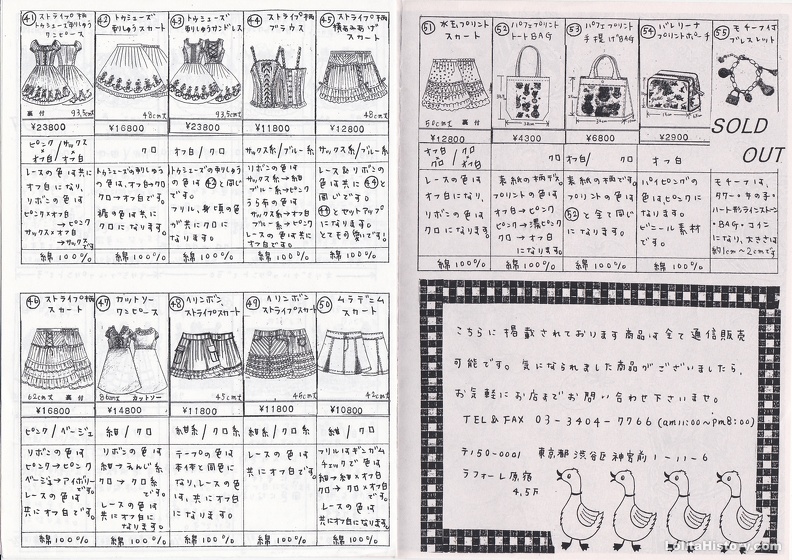 41 ストライプ柄
トゥシューズ刺しゅう
ワンピース
裏付 93.5cm丈
¥23800
ピンク/サックス
×
オフ白/オフ白
レースの色は
オフ白になり、
リボンの色は
ピンク×オフ白
→ピンク
サックス×オフ白
→サックス
です。
綿100%
42 トゥシューズ
刺しゅうスカート
48cm丈
¥16800
クロ
トゥシューズの刺しゅう
の色は、オフ白→クロ
クロ→オフ白
です。
裾の色は共に
クロになります。
綿100%
43 トゥシューズ
刺しゅうサンドレス
93.5cm丈
¥23800
オフ白/クロ
トゥシューズの
色は
42と同じ
です。
フリル、身頃の色
が共にクロに
なります。
綿100%
44 ストライプ柄
ブラカス
¥11800
サックス系/ブルー系
リボンの色は
サックス系→紺
ブルー系→ピンク
うら布の色は
サックス系→オフ白
ブルー系→ピンク
レースの色は共に
オフ白です。
綿100%
45 ストライプ柄
横あみあげ
スカート
48cm丈
¥12800
サックス系/ブルー系
レース&リボンの
色は共に44と
同じです。
44とセットアップ
になります。
とても可愛いです!
綿100%
46 ストライプ柄
スカート
62cm丈 裏付
¥16800
ピンク/ベージュ
リボンの色は
ピンク→ピンク
ベージュ→アイボリー
です。
レースの色は
共にオフ白です。
綿100%
47 カットソー
ワンピース
86cm丈 カットソー
¥14800
紺/クロ
リボンの色は
紺→えんじ系
クロ→クロ系
です。
レースの色は
共にオフ白に
なります。
綿100%
48 ヘリンボン
ストライプスカート
45cm丈
¥11800
紺系/クロ系
テープの色は
本体と同色に
なり、レースの色
は、共にオフ白
になります。
綿100%
49 ヘリンボン
ストライプスカート
46cm丈
¥11800
紺系/クロ系
レースの色は
共にオフ白です。
綿100%
50 ムラデニム
スカート
42cm丈
¥10800
紺/クロ
フリルはギンガム
チェックで色は
紺→紺×オフ白
クロ→クロ×オフ白
です。
レースの色は
共にオフ白です。
綿100%
51 水玉プリント
スカート
50cm丈 裏付
¥12800
オフ白/クロ
レースの色は
オフ白になり、
リボンの色は
クロになります。
綿100%
52 パフェプリント
トートBAG
¥4300
クロ
表紙の柄デス
プリントの色は
オフ白→ピンク
ピンク→濃ピンク
クロ→オフ白
になります。
綿100%
53 パフェプリント
手提げBAG
¥6800
オフ白/クロ
表紙の柄です。
プリントの色は
52と全て同じ
になります。
綿100%
54 バレリーナ
プリントポーチ
¥2900
オフ白
パイピングの
色はピンクに
なります。
ビニール素材
です。
綿100%
55 モチーフ付
ブレスレット
SOLD
OUT
モチーフは、
タワー・きのこ・
ハート形ラインストーン
・BAG・コイン
になり、大きさは
約1cm〜2cmです。
こちらに掲載されております商品は全て通信販売
可能です。気になられました商品がございましたら、
お気軽にお店までお問い合わせ下さいませ。
TEL&FAX 03-3404-7766 (am11:00〜pm8:00)
〒150-0001 東京都渋谷区神宮前1-11-6
ラフォーレ原宿
4.5F
LolitaHistory.com